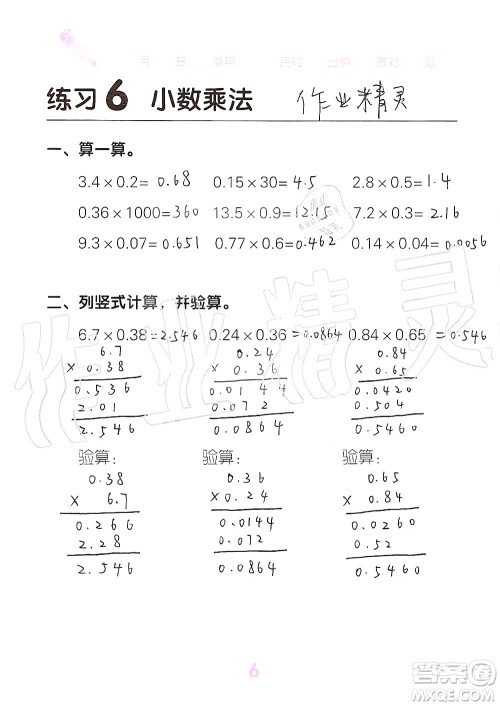 月 日 星期 用时 分钟 答对 题
练习6 小数乘法 作业精灵
一、算一算。
3.4×0.2=0.68 0.15×30=4.5 2.8×0.5=1.4
0.36×1000=360 13.5×0.9=12.15 7.2×0.3=2.16
9.3×0.07=0.651 0.77×0.6=0.462 0.14×0.04=0.0056
二、列竖式计算，并验算。
6.7×0.38=2.546 0.24×0.36=0.0864 0.84×0.65=0.546
6.7 0.24 0.84
× 0.38 × 0.36 × 0.65
0.536 0.0144 0.0420
2.01 0.072 0.504
2.546 0.0864 0.5460
验算： 验算： 验算：
0.38 0.36 0.65
× 6.7 × 0.24 × 0.84
0.266 0.0144 0.0260
2.28 0.072 0.52
2.546 0.0864 0.5460
作业精灵
6
答案圈
MXQE.COM